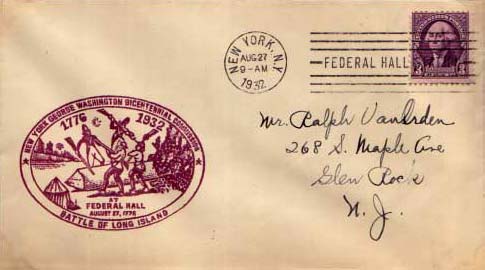 NEW YORK, N.Y.
AUG 27
9-AM
1932
FEDERAL HALL
3 3
NEW YORK GEORGE WASHINGTON BICENTENNIAL COMMISSION
1776 1932
AT
FEDERAL HALL
AUGUST 27, 1776
BATTLE OF LONG ISLAND
Mr. Ralph VanOrden
268 S. Maple Ave
Glen Rock
N. J.